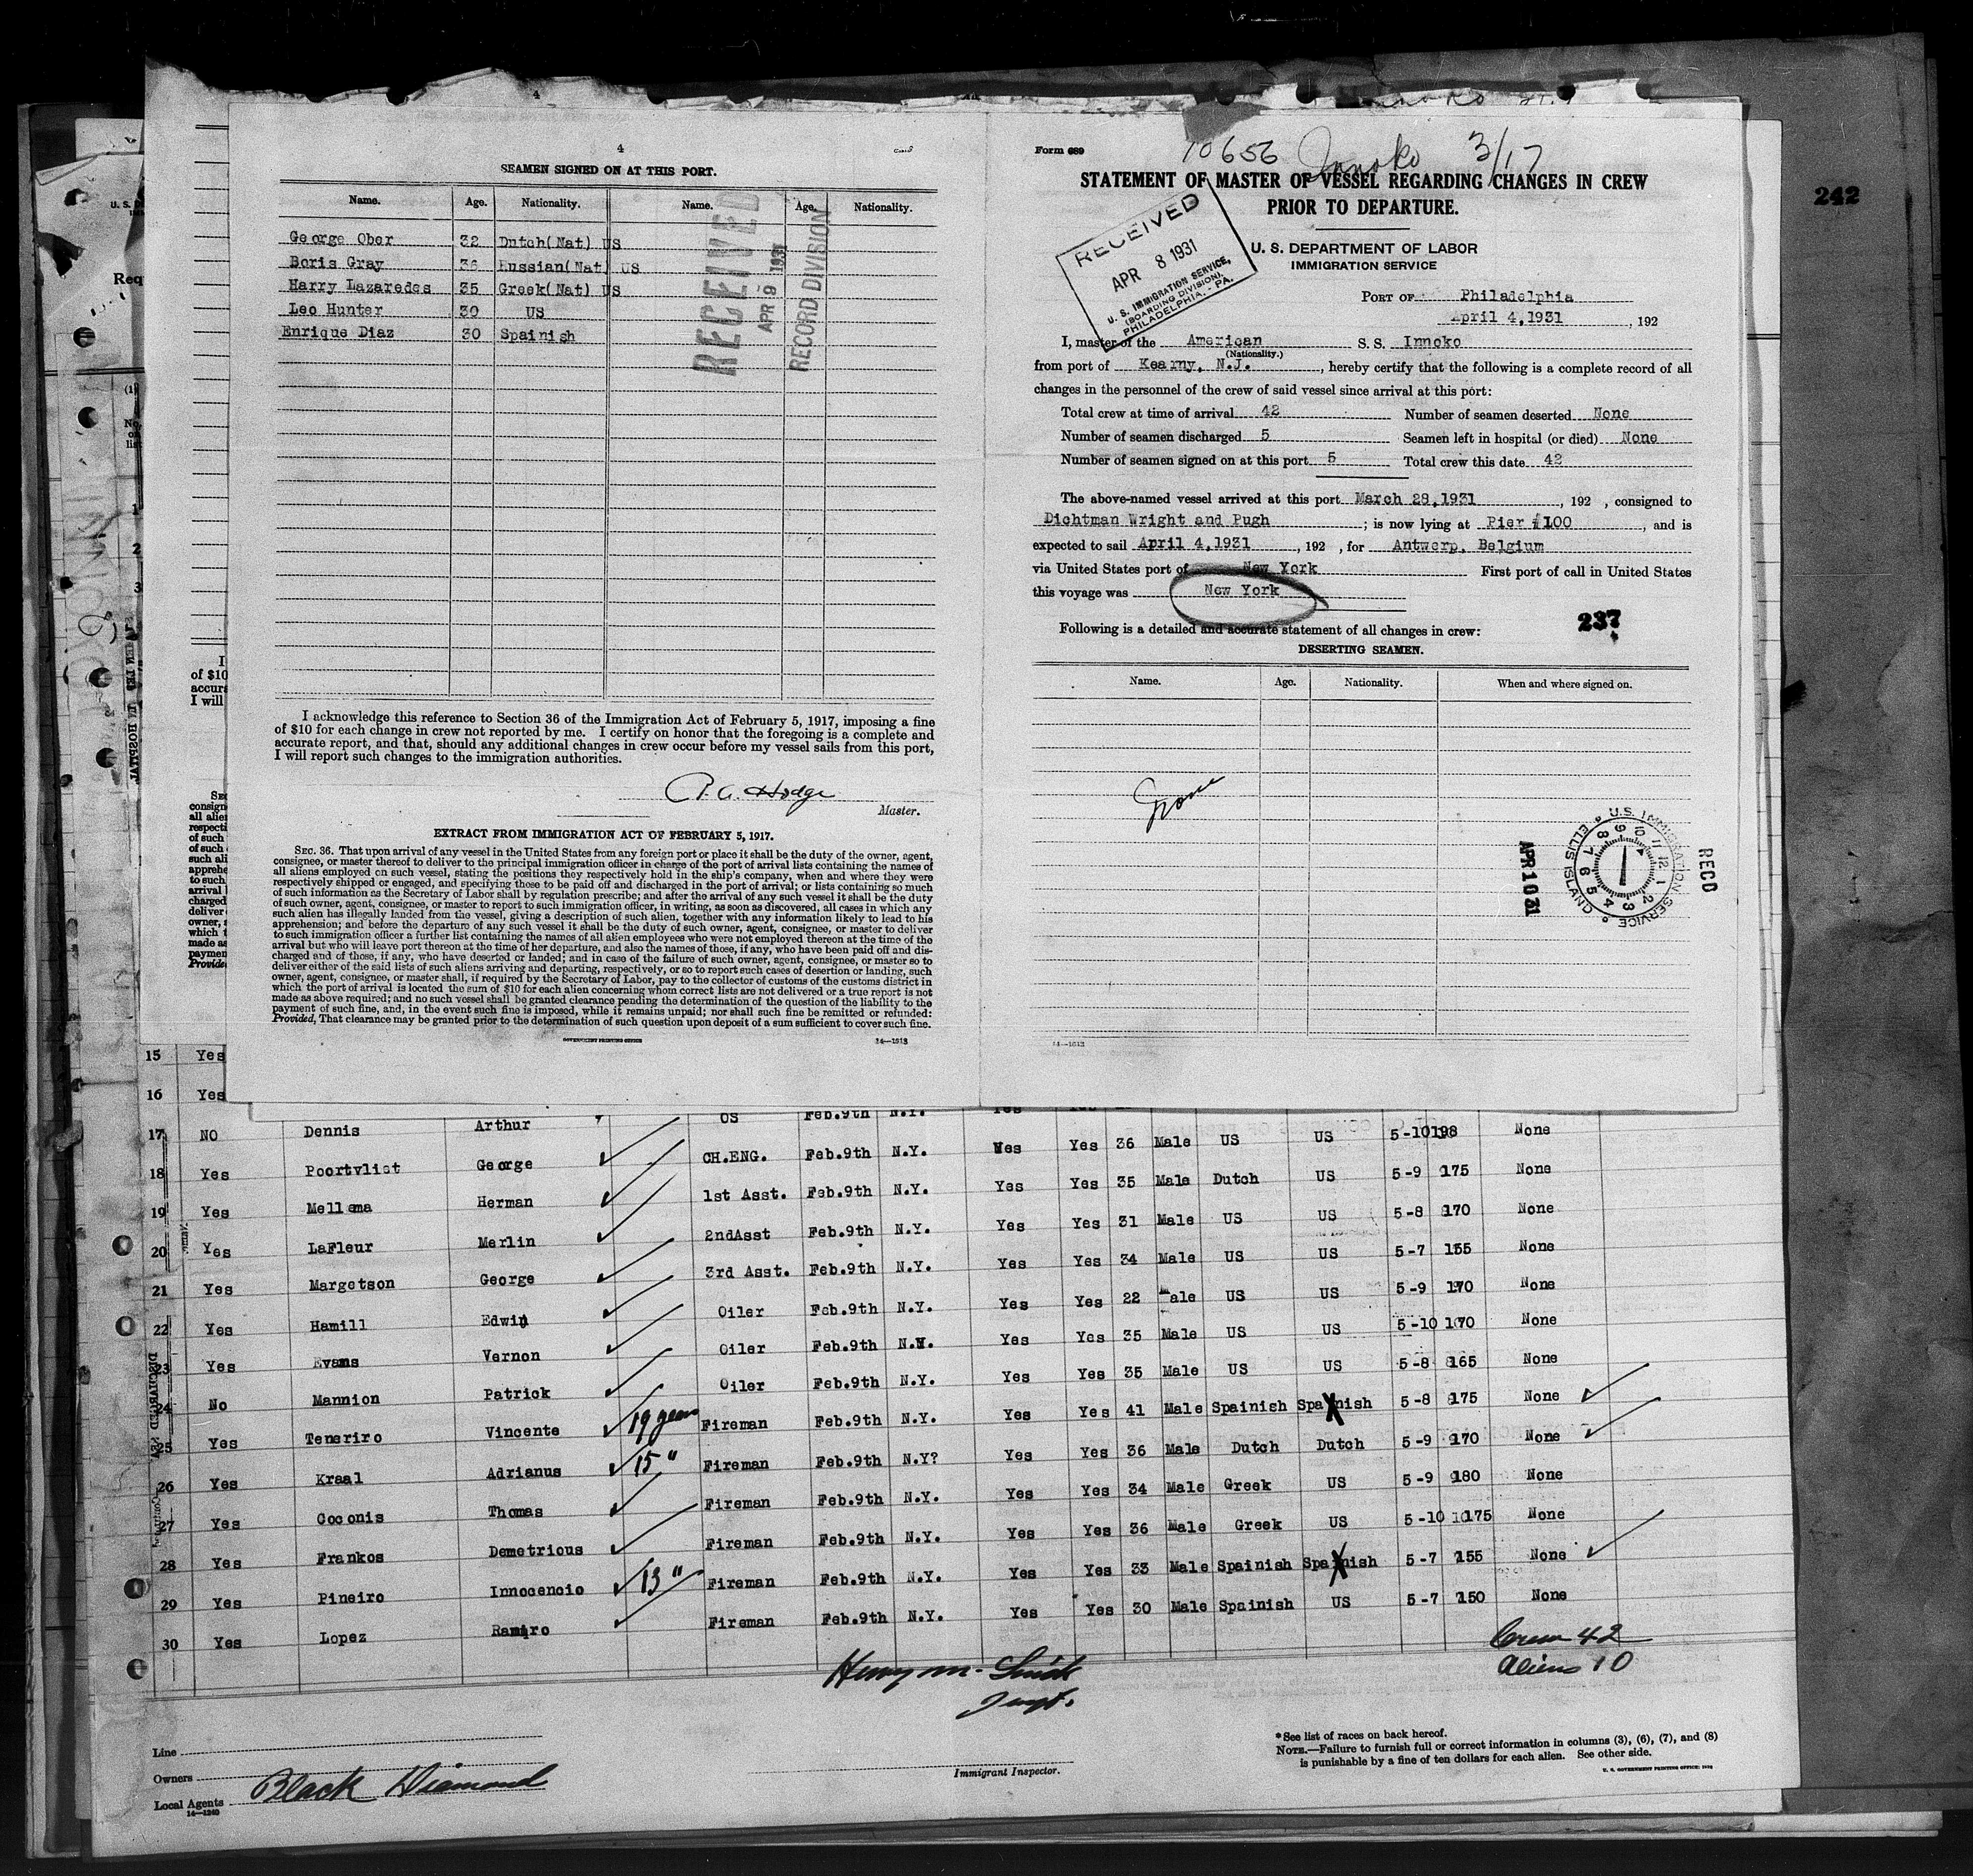 242
4
SEAMEN SIGNED ON AT THIS PORT.
Name. Age. Nationality. Name. Age. Nationality.
George Ober 32 Dutch(Nat) US
Boris Gray 36 Russian(Nat) US
Harry Lazaredes 35 Greek(Nat) US
Leo Hunter 30 US
Enrique Diaz 30 Spainish
RECEIVED
APR 9 1931
RECORD DIVISION
I acknowledge this reference to Section 36 of the Immigration Act of February 5, 1917, imposing a fine
of $10 for each change in crew not reported by me. I certify on honor that the foregoing is a complete and
accurate report, and that, should any additional changes in crew occur before my vessel sails from this port,
I will report such changes to the immigration authorities.
Hodge
Master.
EXTRACT FROM IMMIGRATION ACT OF FEBRUARY 5, 1917.
SEC. 36. That upon arrival of any vessel in the United States from any foreign port or place it shall be the duty of the owner, agent,
consignee, or master thereof to deliver to the principal immigration officer in charge of the port of arrival lists containing the names of
all aliens employed on such vessel, stating the positions they respectively hold in the ship's company, when and where they were
respectively shipped or engaged, and specifying those to be paid off and discharged in the port of arrival; or lists containing so much
of such information as the Secretary of Labor shall by regulation prescribe; and after the arrival of any such vessel it shall be the duty
of such owner, agent, consignee, or master to report to such immigration officer, in writing, as soon as discovered, all cases in which any
such alien has illegally landed from the vessel, giving a description of such alien, together with any information likely to lead to his
apprehension; and before the departure of any such vessel it shall be the duty of such owner, agent, consignee, or master to deliver
to such immigration officer a further list containing the names of all alien employees who were not employed thereon at the time of the
arrival but who will leave port thereon at the time of her departure, and also the names of those, if any, who have been paid off and dis-
charged and of those, if any, who have deserted or landed; and in case of the failure of such owner, agent, consignee, or master so to
deliver either of the said lists of such aliens arriving and departing, respectively, or so to report such cases of desertion or landing, such
owner, agent, consignee, or master shall, if required by the Secretary of Labor, pay to the collector of customs of the customs district in
which the port of arrival is located the sum of $10 for each alien concerning whom correct lists are not delivered or a true report is not
made as above required; and no such vessel shall be granted clearance pending the determination of the question of the liability to the
payment of such fine, and, in the event such fine is imposed, while it remains unpaid; nor shall such fine be remitted or refunded:
Provided, That clearance may be granted prior to the determination of such question upon deposit of a sum sufficient to cover such fine.
GOVERNMENT PRINTING OFFICE 14—1513
Form 689
10656 Innoko 3/17
STATEMENT OF MASTER OF VESSEL REGARDING CHANGES IN CREW
PRIOR TO DEPARTURE.
U. S. DEPARTMENT OF LABOR
IMMIGRATION SERVICE
RECEIVED
APR 8 1931
U. S. IMMIGRATION SERVICE,
(BOARDING DIVISION).
PHILADELPHIA, - PA.
PORT OF Philadelphia
April 4,1931, 192
I, master of the American S. S. Innoko
(Nationality.)
from port of Kearny, N.J., hereby certify that the following is a complete record of all
changes in the personnel of the crew of said vessel since arrival at this port:
Total crew at time of arrival 42 Number of seamen deserted None
Number of seamen discharged 5 Seamen left in hospital (or died) None
Number of seamen signed on at this port 5 Total crew this date 42
The above-named vessel arrived at this port March 28,1931, 192 , consigned to
Dichtman Wright and Pugh; is now lying at Pier #100, and is
expected to sail April 4,1931, 192 , for Antwerp, Belgium
via United States port of New York First port of call in United States
this voyage was New York
237
Following is a detailed and accurate statement of all changes in crew:
DESERTING SEAMEN.
Name. Age. Nationality. When and where signed on.
None
U.S. IMMIGRATION SERVICE
ELLIS ISLAND
APR 10 31
RECD
14—1513
15 Yes
16 Yes
17 NO Dennis Arthur OS Feb.9th N.Y. Yes Yes 36 Male US US 5-10 198 None
18 Yes Poortvliet George CH.ENG. Feb.9th N.Y. Yes Yes 35 Male Dutch US 5-9 175 None
19 Yes Mellema Herman 1st Asst. Feb.9th N.Y. Yes Yes 31 Male US US 5-8 170 None
20 Yes LaFleur Merlin 2ndAsst Feb.9th N.Y. Yes Yes 34 Male US US 5-7 155 None
21 Yes Margetson George 3rd Asst. Feb.9th N.Y. Yes Yes 22 Male US US 5-9 170 None
22 Yes Hamill Edwin Oiler Feb.9th N.Y. Yes Yes 35 Male US US 5-10 170 None
23 Yes Evans Vernon Oiler Feb.9th N.Y. Yes Yes 35 Male US US 5-8 165 None
24 No Mannion Patrick Oiler Feb.9th N.Y. Yes Yes 41 Male Spainish Spainish 5-8 175 None
25 Yes Teneriro Vincente 19 years Fireman Feb.9th N.Y. Yes Yes 36 Male Dutch Dutch 5-9 170 None
26 Yes Kraal Adrianus 15 " Fireman Feb.9th N.Y? Yes Yes 34 Male Greek US 5-9 180 None
27 Yes Goconis Thomas Fireman Feb.9th N.Y. Yes Yes 36 Male Greek US 5-10 175 None
28 Yes Frankos Demetrious Fireman Feb.9th N.Y. Yes Yes 33 Male Spainish Spainish 5-7 155 None
29 Yes Pineiro Innocencio 13 " Fireman Feb.9th N.Y. Yes Yes 30 Male Spainish US 5-7 150 None
30 Yes Lopez Ramiro Fireman Feb.9th N.Y.
Crew 42
Aliens 10
Henry M. Smith
Inspt.
Line
Owners
Local Agents Black Diamond
14—1240
Immigrant Inspector.
*See list of races on back hereof.
NOTE.—Failure to furnish full or correct information in columns (3), (6), (7), and (8)
is punishable by a fine of ten dollars for each alien. See other side.